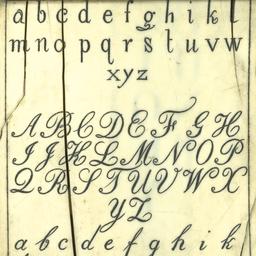 a b c d e f g h i k l
m n o p q r s t u v w
x y z
A B C D E F G H
I J K L M N O P
Q R S T U V W X
Y Z
a b c d e f g h i k